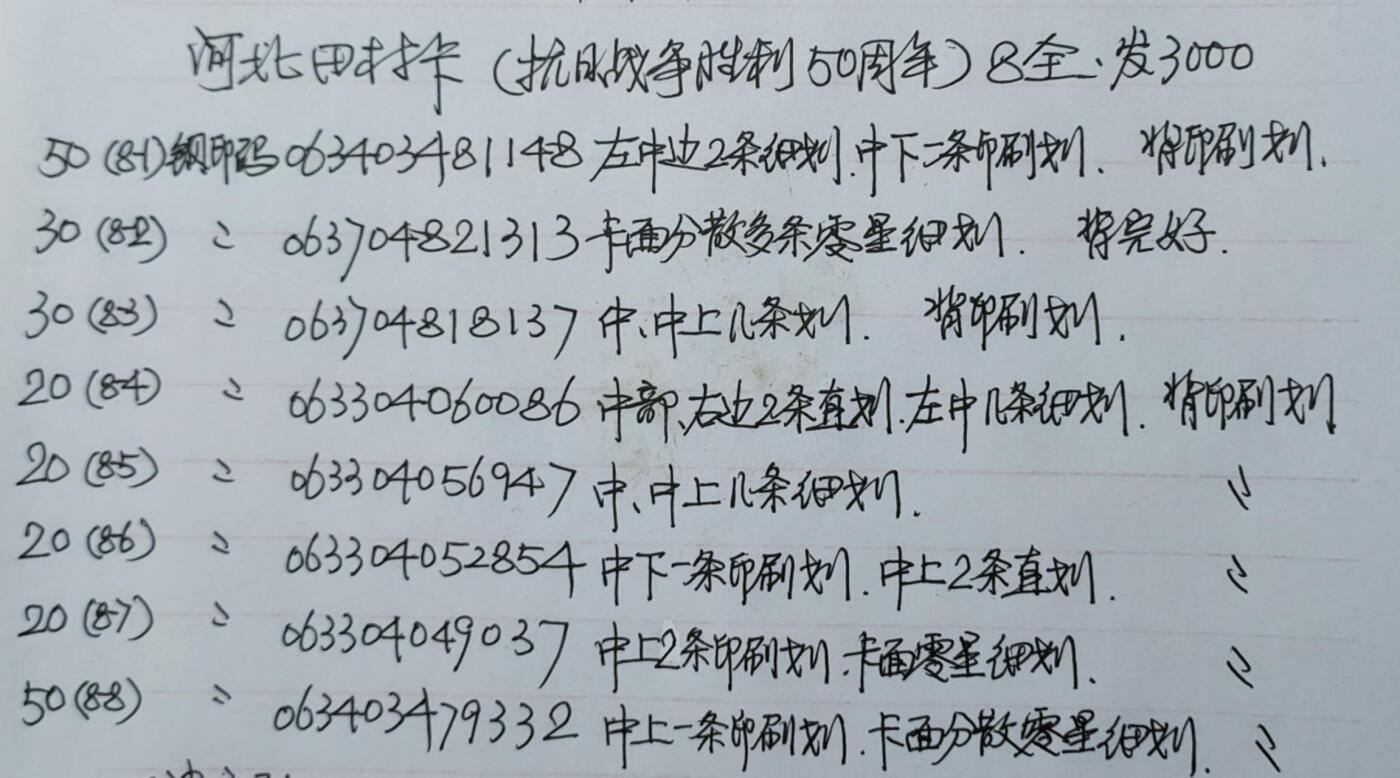 河北田村卡（抗日战争胜利50周年）8全.发3000
50(8-1)钢印码063403481148左中边2条细划.中下二条印刷划. 背印刷划.
30(8-2) 〃 063704821313卡面分散多条零星细划. 背完好.
30(8-3) 〃 063704818137中、中上几条划. 背印刷划.
20(8-4) 〃 063304060086中部、右边2条直划.左中几条细划. 背印刷划
20(8-5) 〃 063304056947中、中上几条细划. 〃
20(8-6) 〃 063304052854中下一条印刷划.中上2条直划. 〃
20(8-7) 〃 063304049037中上2条印刷划.卡面零星细划. 〃
50(8-8) 〃 063403479332中上一条印刷划.卡面分散零星细划. 〃